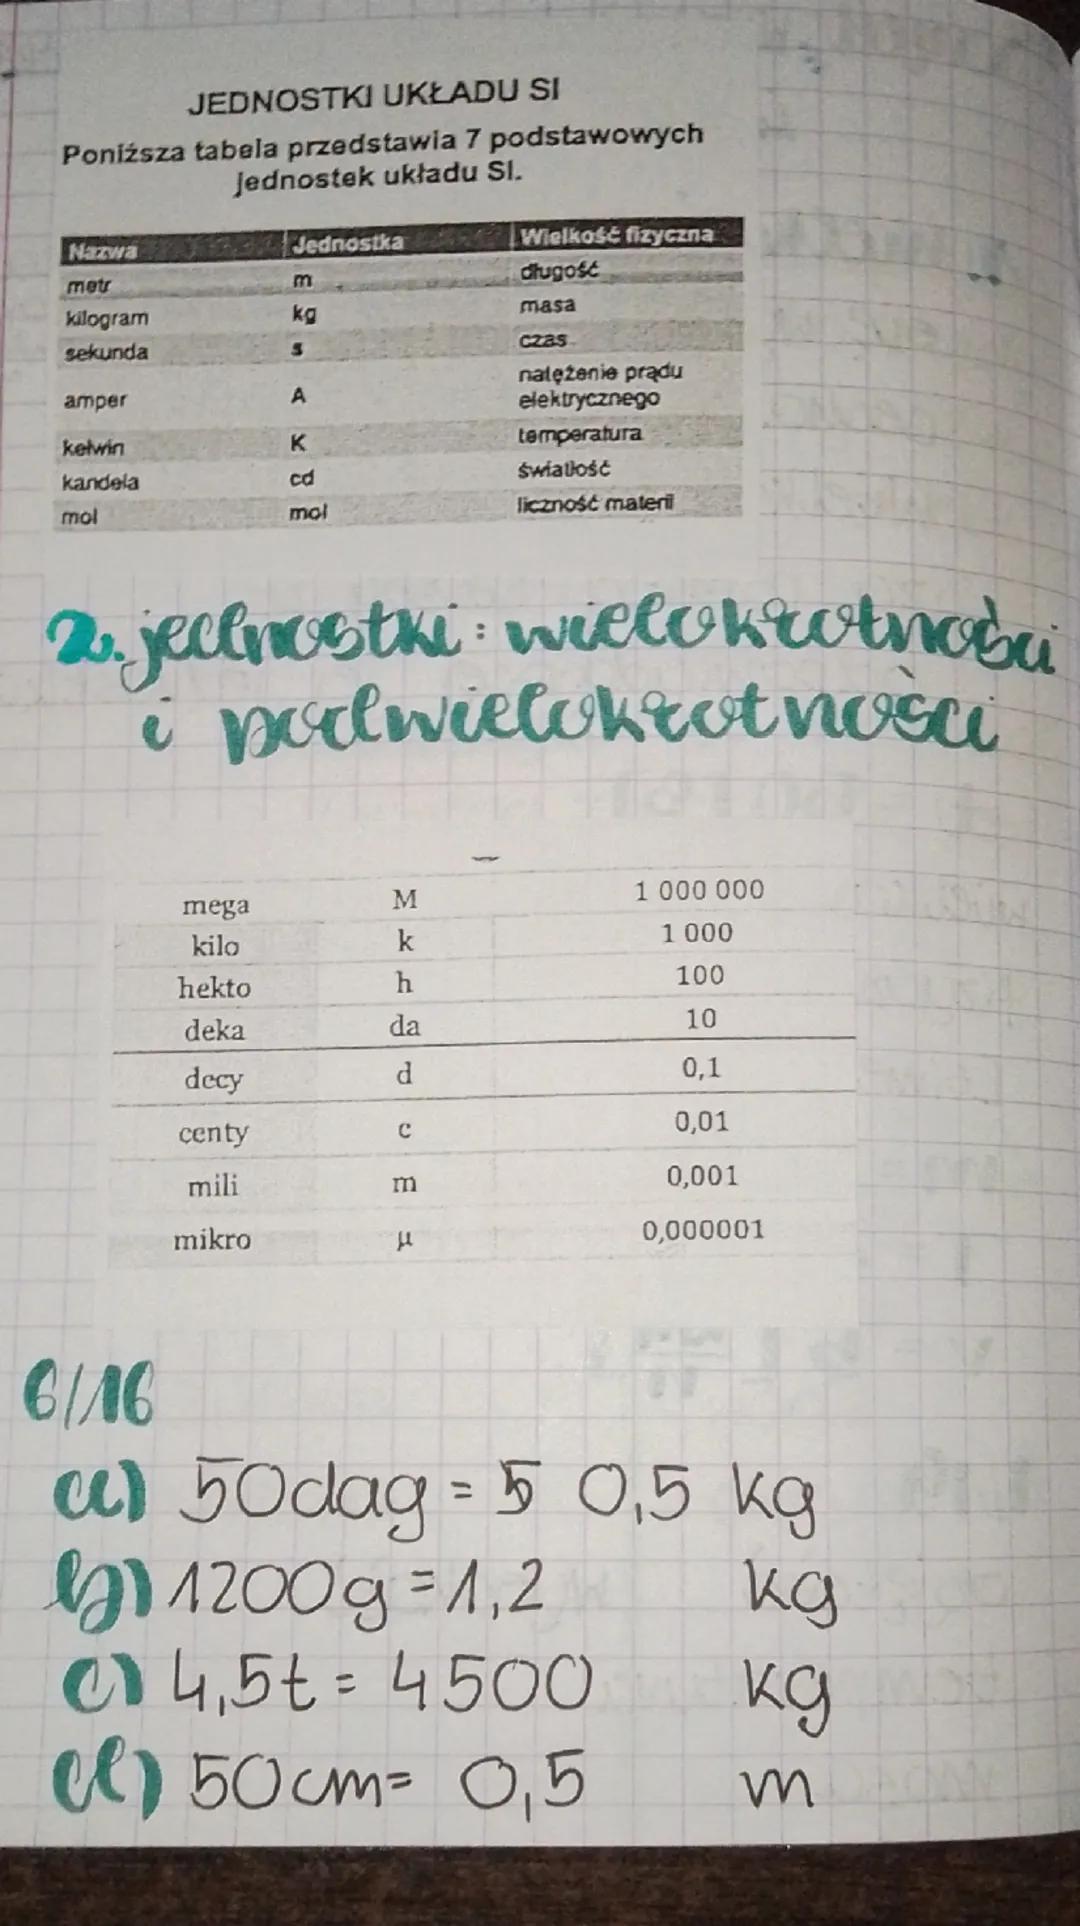 JEDNOSTKI UKŁADU SI
Poniższa tabela przedstawia 7 podstawowych
jednostek układu SI.
Nazwa Jednostka Wielkość fizyczna
metr m długość
kilogram kg masa
sekunda s czas
amper A natężenie prądu
elektrycznego
kelwin K temperatura
kandela cd światłość
mol mol liczność materii
2. jednostki: wielokrotności
i podwielokrotności
mega M 1 000 000
kilo k 1 000
hekto h 100
deka da 10
decy d 0,1
centy c 0,01
mili m 0,001
mikro μ 0,000001
6/16
a) 50dag = 5 0,5 kg
b) 1200g = 1,2 kg
c) 4,5t = 4500 kg
d) 50cm = 0,5 m